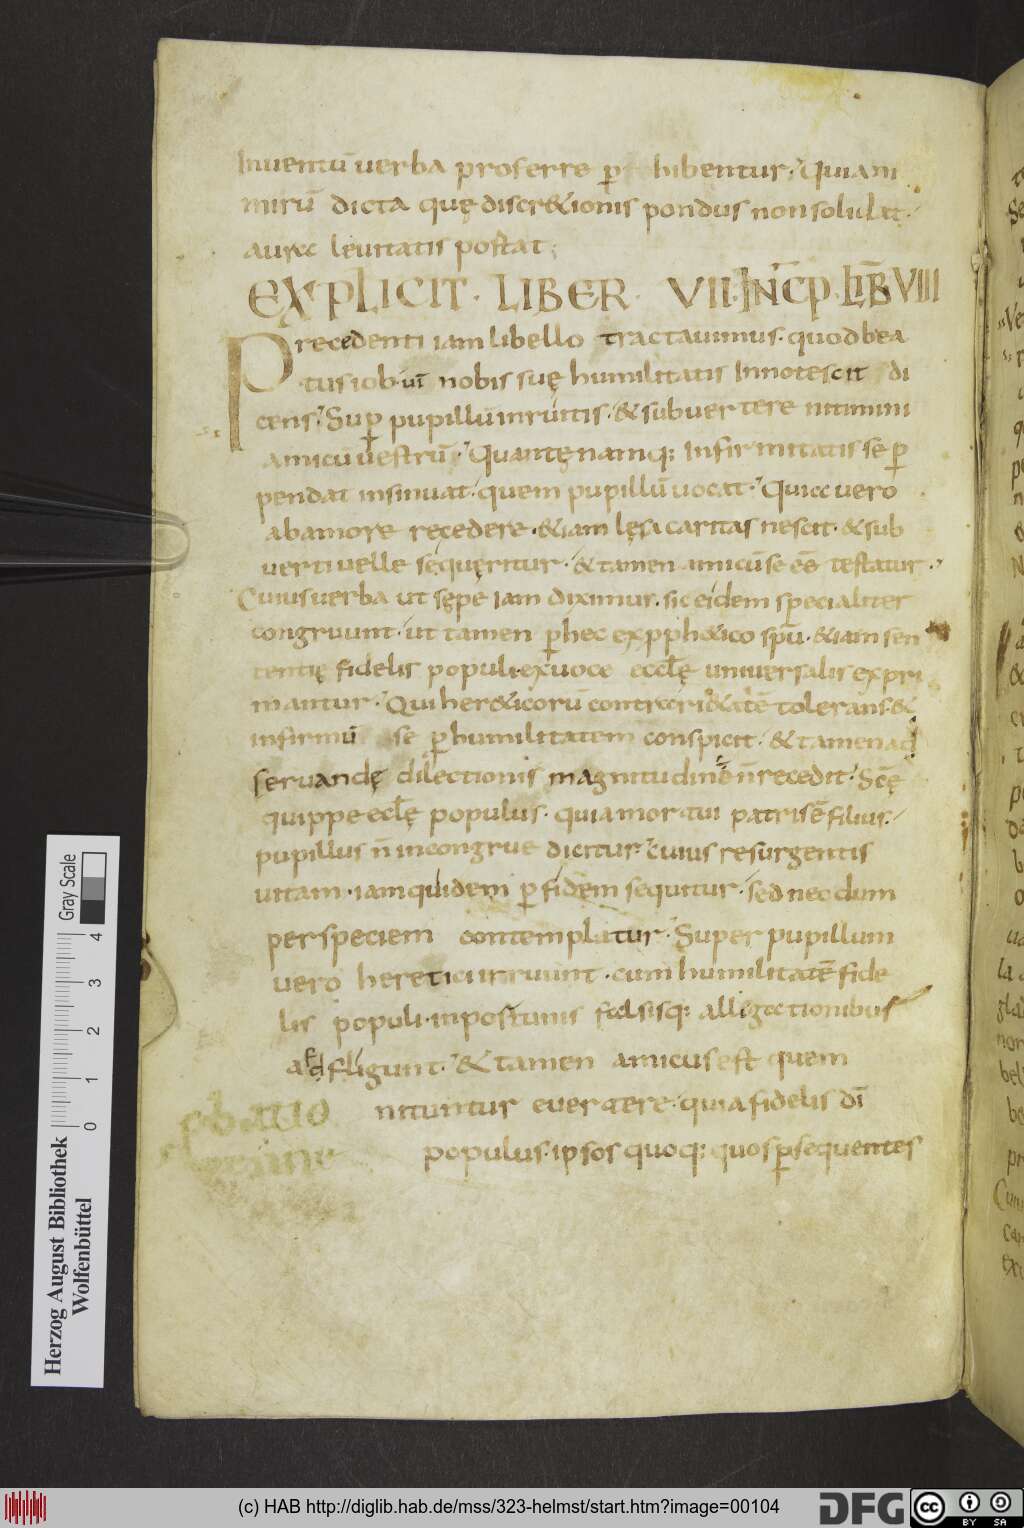 Inuentū uerba proferre p hibentur. Quia ni
mirū dicta quę discr&ionis pondus non solidat.
aurae leuitatis portat;
EXPLICIT · LIBER · VII · INCP · LIB VIII
Precedenti iam libello tractauimus. quod bea
tus iob ut nobis suę humilitatis Innotescit di
cens. Sup pupillū inruitis. & subuertere nitimini
amicū uestrū. Quantę namq: Infirmitatis se p
pendat insinuat. quem pupillū uocat. Quia uero
ab amore recedere. &iam lęsa caritas nescit. & sub
uerti uelle sequęritur. & tamen amicū se eē testatur.
Cuius uerba ut sępe iam diximus. sic eidem specialiter
congruunt. ut tamen p hec ex pph&ico spū. &iam sen
tentię fidelis populi. ex uoce ecclę uniuersalis expri
mantur. Qui her&icorū contrari&atē tolerans &
infirmū se p humilitatem conspicit. & tamen ad
seruandę dilectionis magnitudine n̄ recedit. Scę
quippe eclę populus. quia mortui patris ē filius.
pupillus n̄ incongrue dicitur. cuius resurgentis
uitam. iam quidem p fidem sequitur. sed necdum
per speciem contemplatur. Super pupillum
uero heretici irruunt. cum humilitatē fide
lis populi. inportunis falsisq: allegationibus
adfligunt. & tamen amicus est quem
nituntur euertere. quia fidelis dī
populus. ipsos quoq: quos psequentes
Herzog August Bibliothek
Wolfenbüttel
Gray Scale
0 1 2 3 4
(c) HAB http://diglib.hab.de/mss/323-helmst/start.htm?image=00104
DFG
cc BY SA